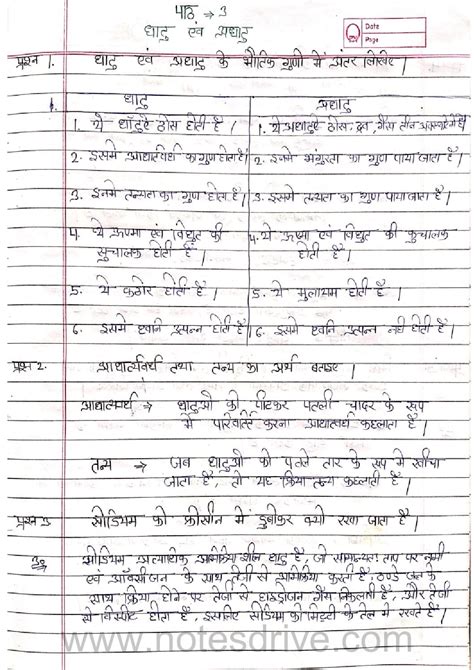 पाठ → 3
धातु एवं अधातु
Date
Page
प्रश्न 1. धातु एवं अधातु के भौतिक गुणों में अंतर लिखिए।
1. धातु अधातु
1. ये धातुएं ठोस होती है। 1. ये अधातुएं ठोस, द्रव, गैस तीन अवस्था में है।
2. इसमे आघातवर्ध का गुण होता है। 2. इनमे भंगुरता का गुण पाया जाता है।
3. इनमे तन्यता का गुण होता है। 3. इसमे तन्यता का गुण पाया जाता है।
4. ये ऊष्मा एवं विद्युत की 4. ये ऊष्मा एवं विद्युत की कुचालक
सुचालक होती है। होती है।
5. ये कठोर होती है। 5. ये मुलायम होती है।
6. इसमे ध्वनि उत्पन्न होती है। 6. इसमे ध्वनि उत्पन्न नही होती है।
प्रश्न 2. आघातवर्ध तथा तन्य का अर्थ बताइए।
आघातवर्ध → धातुओ को पीटकर पतली चादर के रूप
में परिवर्तित करना आघातवर्ध कहलाता है।
तन्य → जब धातुओं को पतले तार के रूप मे खींचा
जाता है, तो यह क्रिया तन्य कहलाती है।
प्रश्न 3 सोडियम को केरोसीन में डुबोकर क्यो रखा जाता है।
उ० सोडियम अत्याधिक अभिक्रियाशील धातु है, जो सामान्यतः ताप पर नमी
एवं ऑक्सीजन के साथ तेजी से अभिक्रिया करती है, ठण्डे जल के
साथ क्रिया होने पर तेजी से हाइड्रोजन गैस निकलती है, और तेजी
से विस्फोट होता है, इसलिए सोडियम को मिट्टी के तेल मे रखते है।
www.notesdrive.com